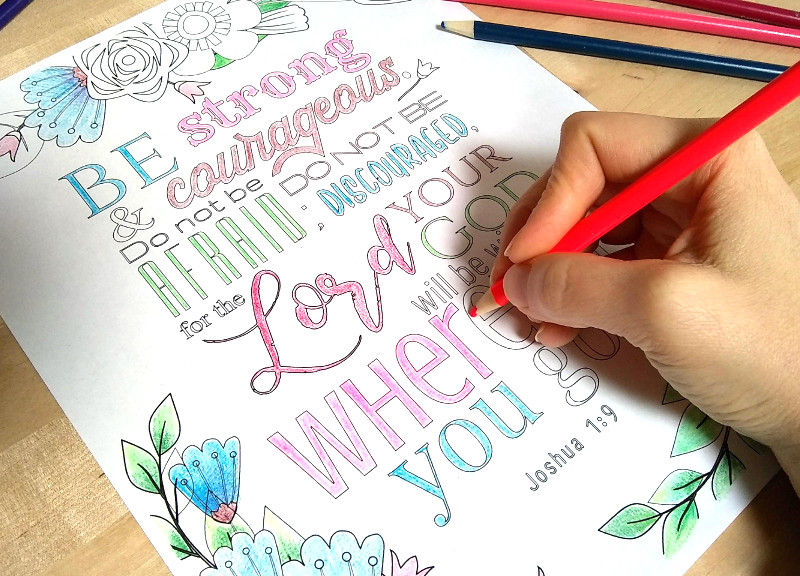 BE strong
& courageous.
Do not be
AFRAID;
DO NOT BE
DISCOURAGED,
for the Lord
YOUR
GOD
will be
WHere
you go
Joshua 1:9